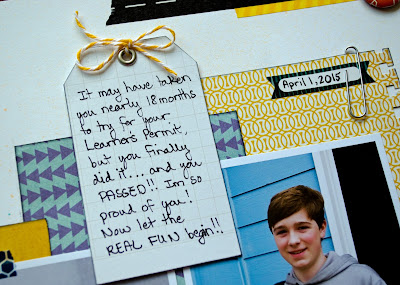 It may have taken
you nearly 18 months
to try for your
Learner's Permit,
but you finally
did it.... and you
PASSED!! Im so
proud of you!
Now let the
REAL FUN begin!!
April 1, 2015